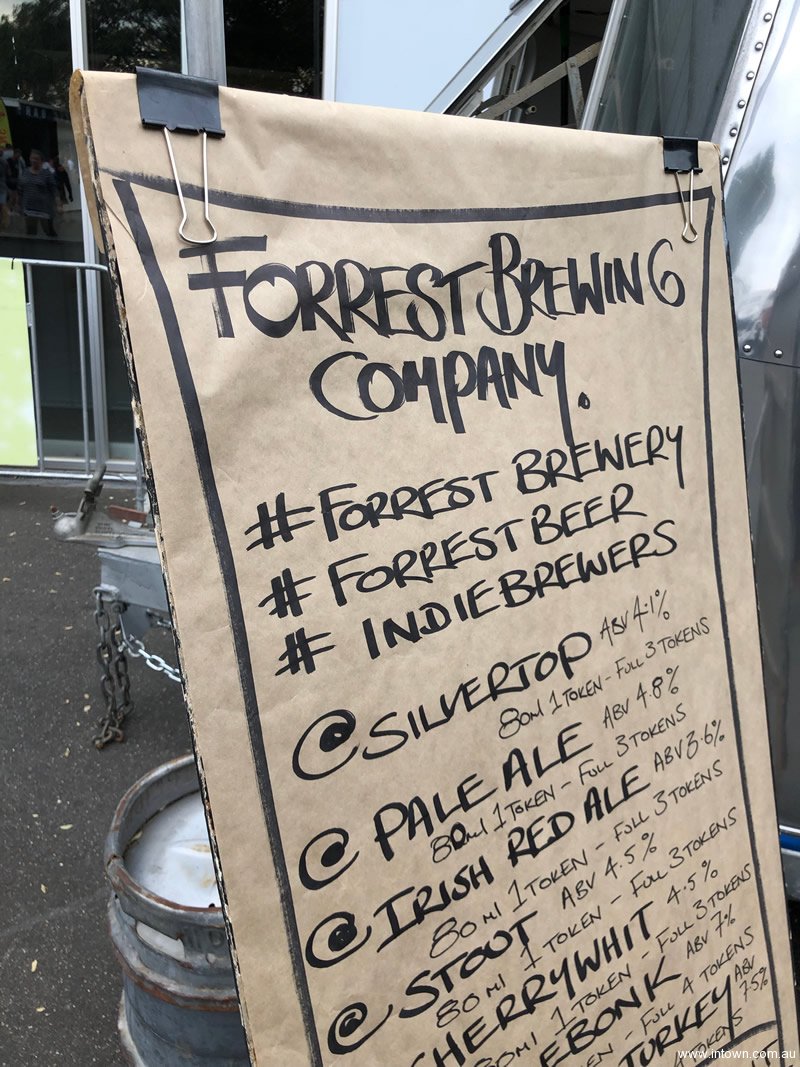 FORREST BREWING
COMPANY.
# FORREST BREWERY
# FORREST BEER
# INDIEBREWERS
@ SILVERTOP ABV 4.1%
80ml 1 TOKEN - FULL 3 TOKENS
@ PALE ALE ABV 4.8%
80ml 1 TOKEN - FULL 3 TOKENS
@ IRISH RED ALE ABV 3.6%
80 ml 1 TOKEN - FULL 3 TOKENS
@ STOUT ABV 4.5%
80 ml 1 TOKEN - FULL 3 TOKENS
@ CHERRYWHIT 4.5%
80ml 1 TOKEN - FULL 3 TOKENS
EBONK ABV 7%
TOKEN - FULL 4 TOKENS
TURKEY ABV 7.5%
TOKENS
www.intown.com.au